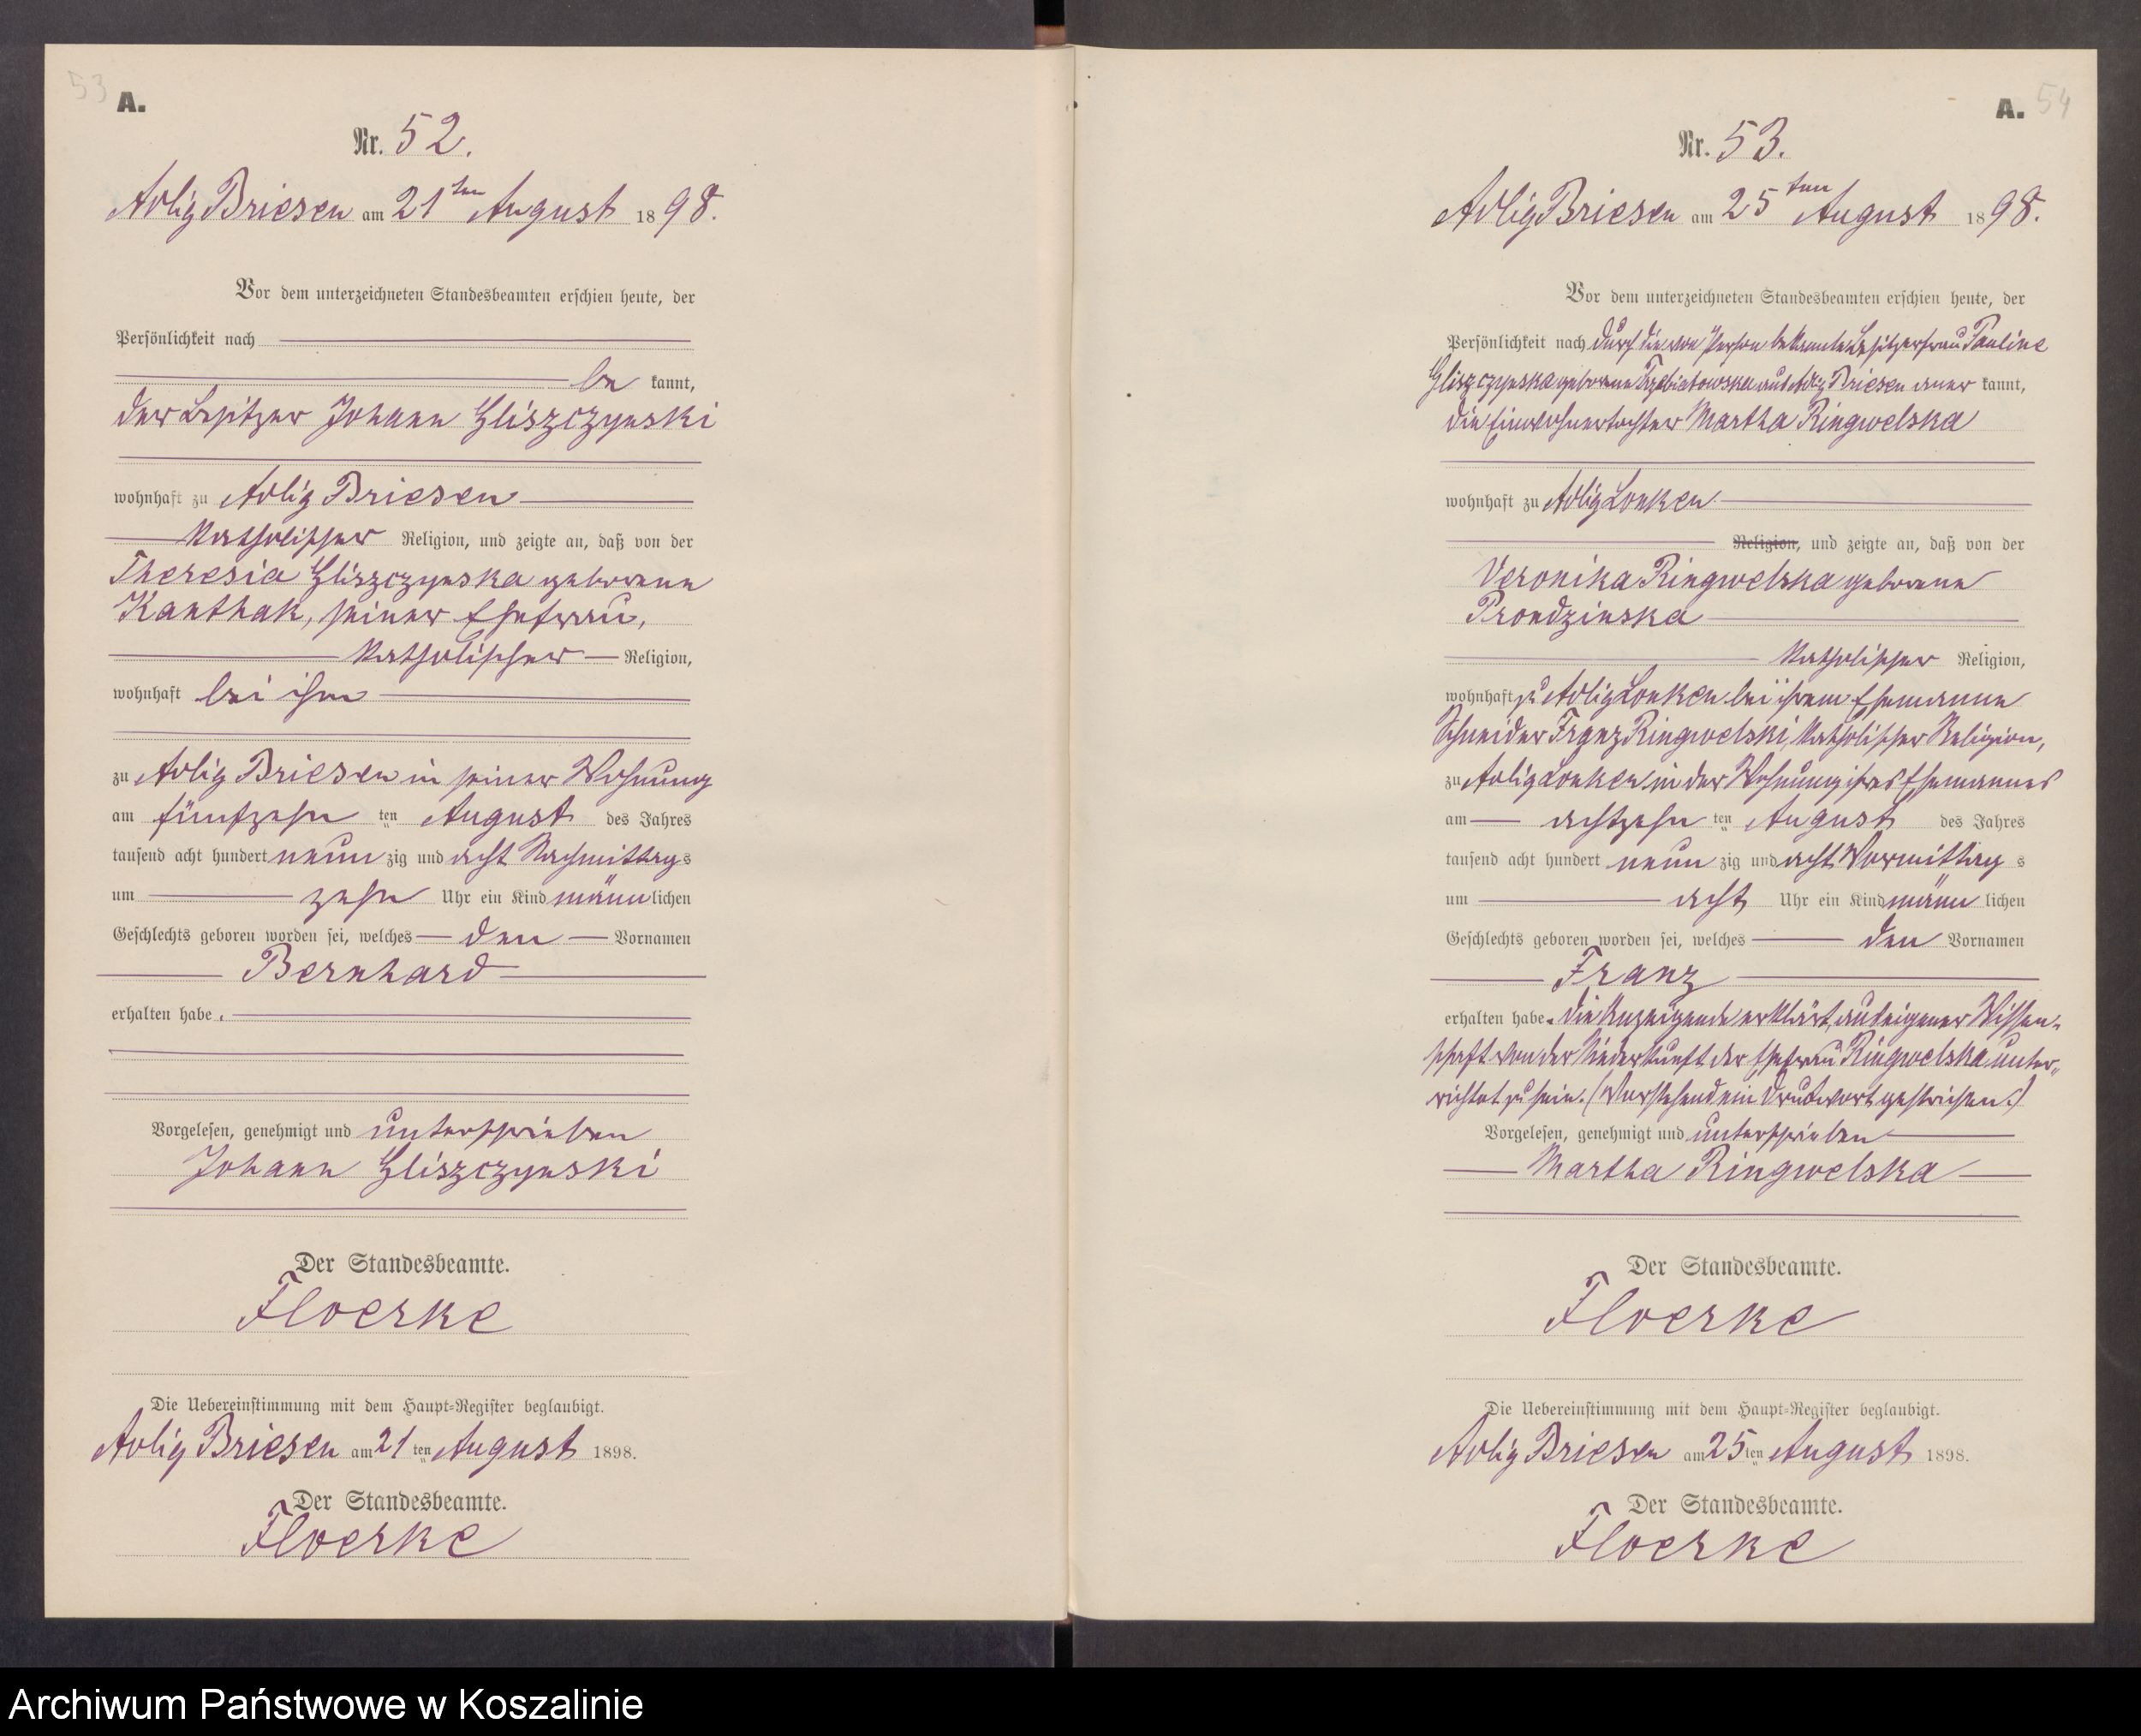 53
A.
Nr. 52.
Adlig Briesen am 21ten August 1898.
Vor dem unterzeichneten Standesbeamten erschien heute, der
Persönlichkeit nach
be kannt,
der Besitzer Johann Gliszczynski
wohnhaft zu Adlig Briesen
katholischer Religion, und zeigte an, daß von der
Theresia Gliszczynska geborene
Kanthak, seiner Ehefrau,
katholischer Religion,
wohnhaft bei ihm
zu Adlig Briesen in seiner Wohnung
am fünfzehn ten August des Jahres
tausend acht hundert neun zig und acht Nachmittags
um zehn Uhr ein Kind männlichen
Geschlechts geboren worden sei, welches den Vornamen
Bernhard
erhalten habe.
Vorgelesen, genehmigt und unterschrieben
Johann Gliszczynski
Der Standesbeamte.
Floerke
Die Uebereinstimmung mit dem Haupt-Register beglaubigt.
Adlig Briesen am 21ten August 1898.
Der Standesbeamte.
Floerke
A. 54
Nr. 53.
Adlig Briesen am 25ten August 1898.
Vor dem unterzeichneten Standesbeamten erschien heute, der
Persönlichkeit nach durch die von Person bekannte Besitzerfrau Pauline
Gliszczynska geborene Trzebiatowska aus Adlig Briesen aner kannt,
die Einwohnertochter Martha Ringwelska
wohnhaft zu Adlig Lonken
Religion, und zeigte an, daß von der
Veronika Ringwelska geborene
Prondzinska
katholischer Religion,
wohnhaft zu Adlig Lonken bei ihrem Ehemanne
Schneider Franz Ringwelski, katholischer Religion,
zu Adlig Lonken in der Wohnung ihres Ehemannes
am achtzehn ten August des Jahres
tausend acht hundert neun zig und acht Vormittag s
um acht Uhr ein Kind männ lichen
Geschlechts geboren worden sei, welches den Vornamen
Franz
erhalten habe. Die Anzeigende erklärt, aus eigener Wissen-
schaft von der Niederkunft der Ehefrau Ringwelska unter-
richtet zu sein. (Vorstehend ein Druckwort gestrichen.)
Vorgelesen, genehmigt und unterschrieben
Martha Ringwelska
Der Standesbeamte.
Floerke
Die Uebereinstimmung mit dem Haupt-Register beglaubigt.
Adlig Briesen am 25ten August 1898.
Der Standesbeamte.
Floerke
Archiwum Państwowe w Koszalinie